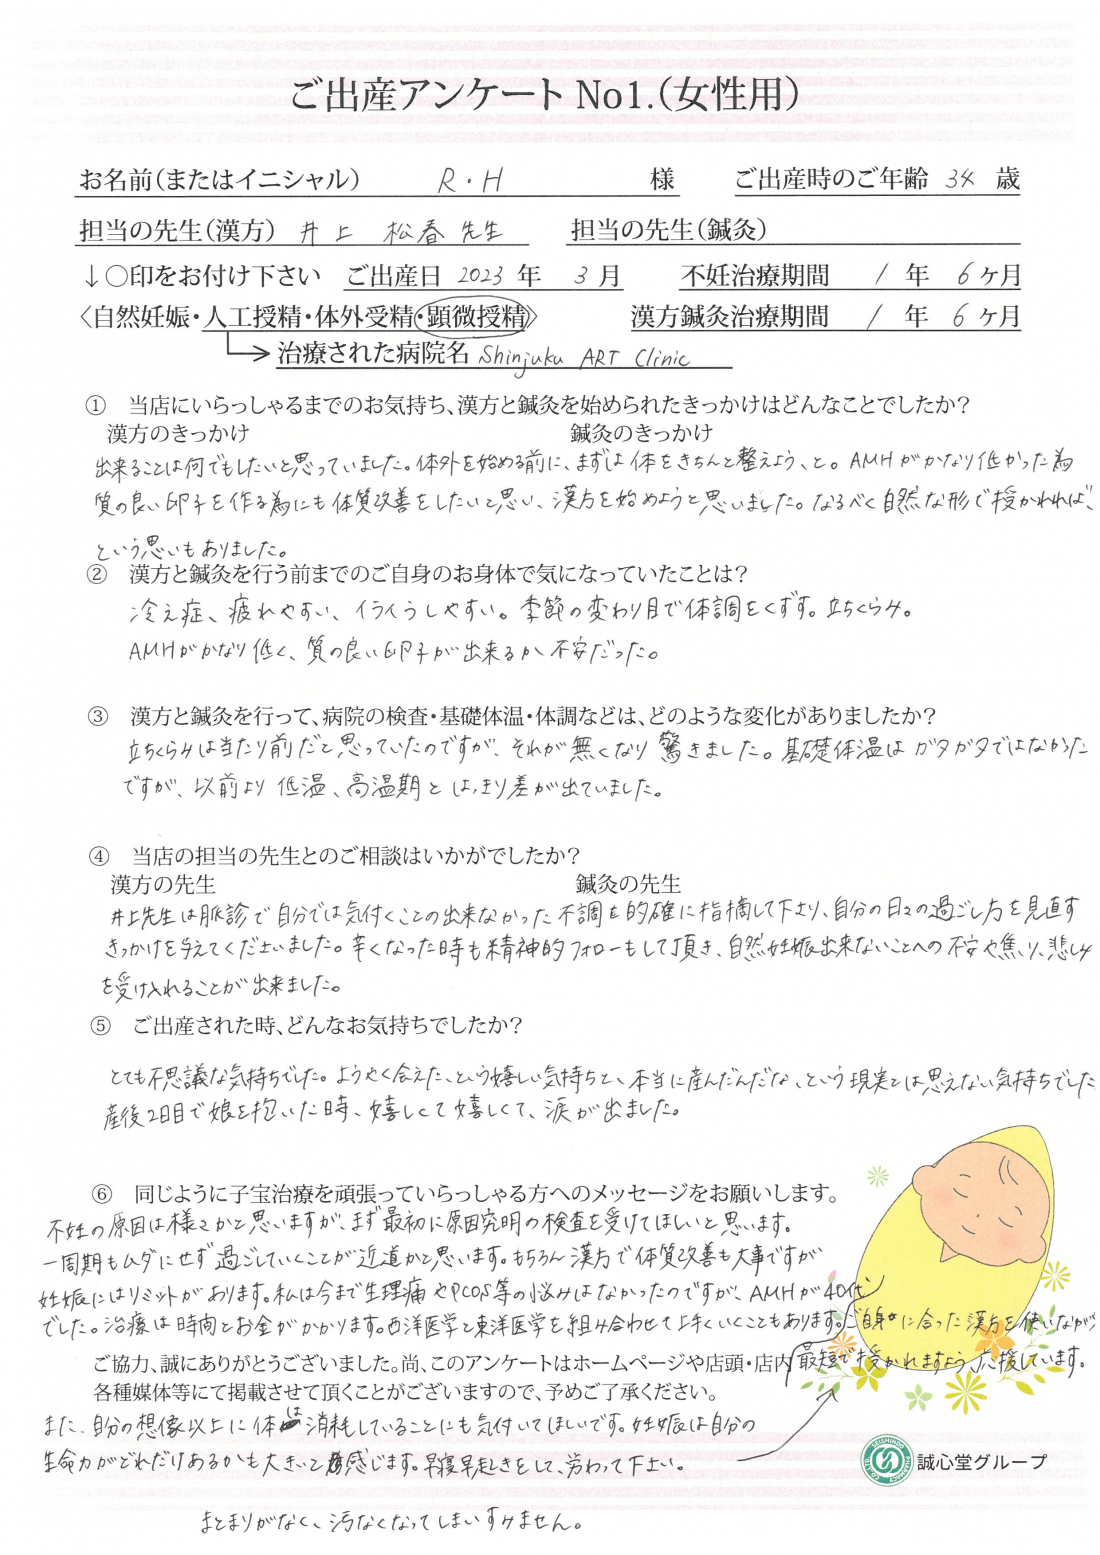 ご出産アンケート No1.（女性用）
お名前（またはイニシャル） R・H 様 ご出産時のご年齢 34 歳
担当の先生（漢方） 井上 松春 先生 担当の先生（鍼灸）
↓○印をお付け下さい ご出産日 2023 年 3 月 不妊治療期間 1 年 6 ヶ月
〈自然妊娠・人工授精・体外受精・顕微授精〉 漢方鍼灸治療期間 1 年 6 ヶ月
治療された病院名 Shinjuku ART Clinic
① 当店にいらっしゃるまでのお気持ち、漢方と鍼灸を始められたきっかけはどんなことでしたか？
漢方のきっかけ 鍼灸のきっかけ
出来ることは何でもしたいと思っていました。体外を始める前に、まずは体をきちんと整えよう、と。AMHがかなり低かった為
質の良い卵子を作る為にも体質改善をしたいと思い、漢方を始めようと思いました。なるべく自然な形で授かれれば、
という思いもありました。
② 漢方と鍼灸を行う前までのご自身のお身体で気になっていたことは？
冷え症、疲れやすい、イライラしやすい。季節の変わり目で体調をくずす。立ちくらみ。
AMHがかなり低く、質の良い卵子が出来るか不安だった。
③ 漢方と鍼灸を行って、病院の検査・基礎体温・体調などは、どのような変化がありましたか？
立ちくらみは当たり前だと思っていたのですが、それが無くなり驚きました。基礎体温はガタガタではなかった
ですが、以前より低温、高温期とはっきり差が出ていました。
④ 当店の担当の先生とのご相談はいかがでしたか？
漢方の先生 鍼灸の先生
井上先生は脈診で自分では気付くことの出来なかった不調を的確に指摘して下さり、自分の日々の過ごし方を見直す
きっかけを与えてくださいました。辛くなった時も精神的フォローもして頂き、自然妊娠出来ないことへの不安や焦り、悲しみ
を受け入れることが出来ました。
⑤ ご出産された時、どんなお気持ちでしたか？
とても不思議な気持ちでした。ようやく会えた、という嬉しい気持ちと、本当に産んだんだな、という現実とは思えない気持ちでした
産後2日目で娘を抱いた時、嬉しくて嬉しくて、涙が出ました。
⑥ 同じように子宝治療を頑張っていらっしゃる方へのメッセージをお願いします。
不妊の原因は様々かと思いますが、まず最初に原因究明の検査を受けてほしいと思います。
一周期もムダにせず過ごしていくことが近道かと思います。もちろん漢方で体質改善も大事ですが
妊娠にはリミットがあります。私は今まで生理痛やPCOS等の悩みはなかったのですが、AMHが40代
でした。治療は時間とお金がかかります。西洋医学と東洋医学を組み合わせて上手くいくこともあります。ご自身に合った漢方を使いながら
最短で授かれますよう、応援しています。
ご協力、誠にありがとうございました。尚、このアンケートはホームページや店頭・店内
各種媒体等にて掲載させて頂くことがございますので、予めご了承ください。
また、自分の想像以上に体は消耗していることにも気付いてほしいです。妊娠は自分の
生命力がどれだけあるかも大きいと感じます。早寝早起きをして、労わって下さい。
SEISHINDO
誠心堂グループ
まとまりがなく、汚なくなってしまいすみません。